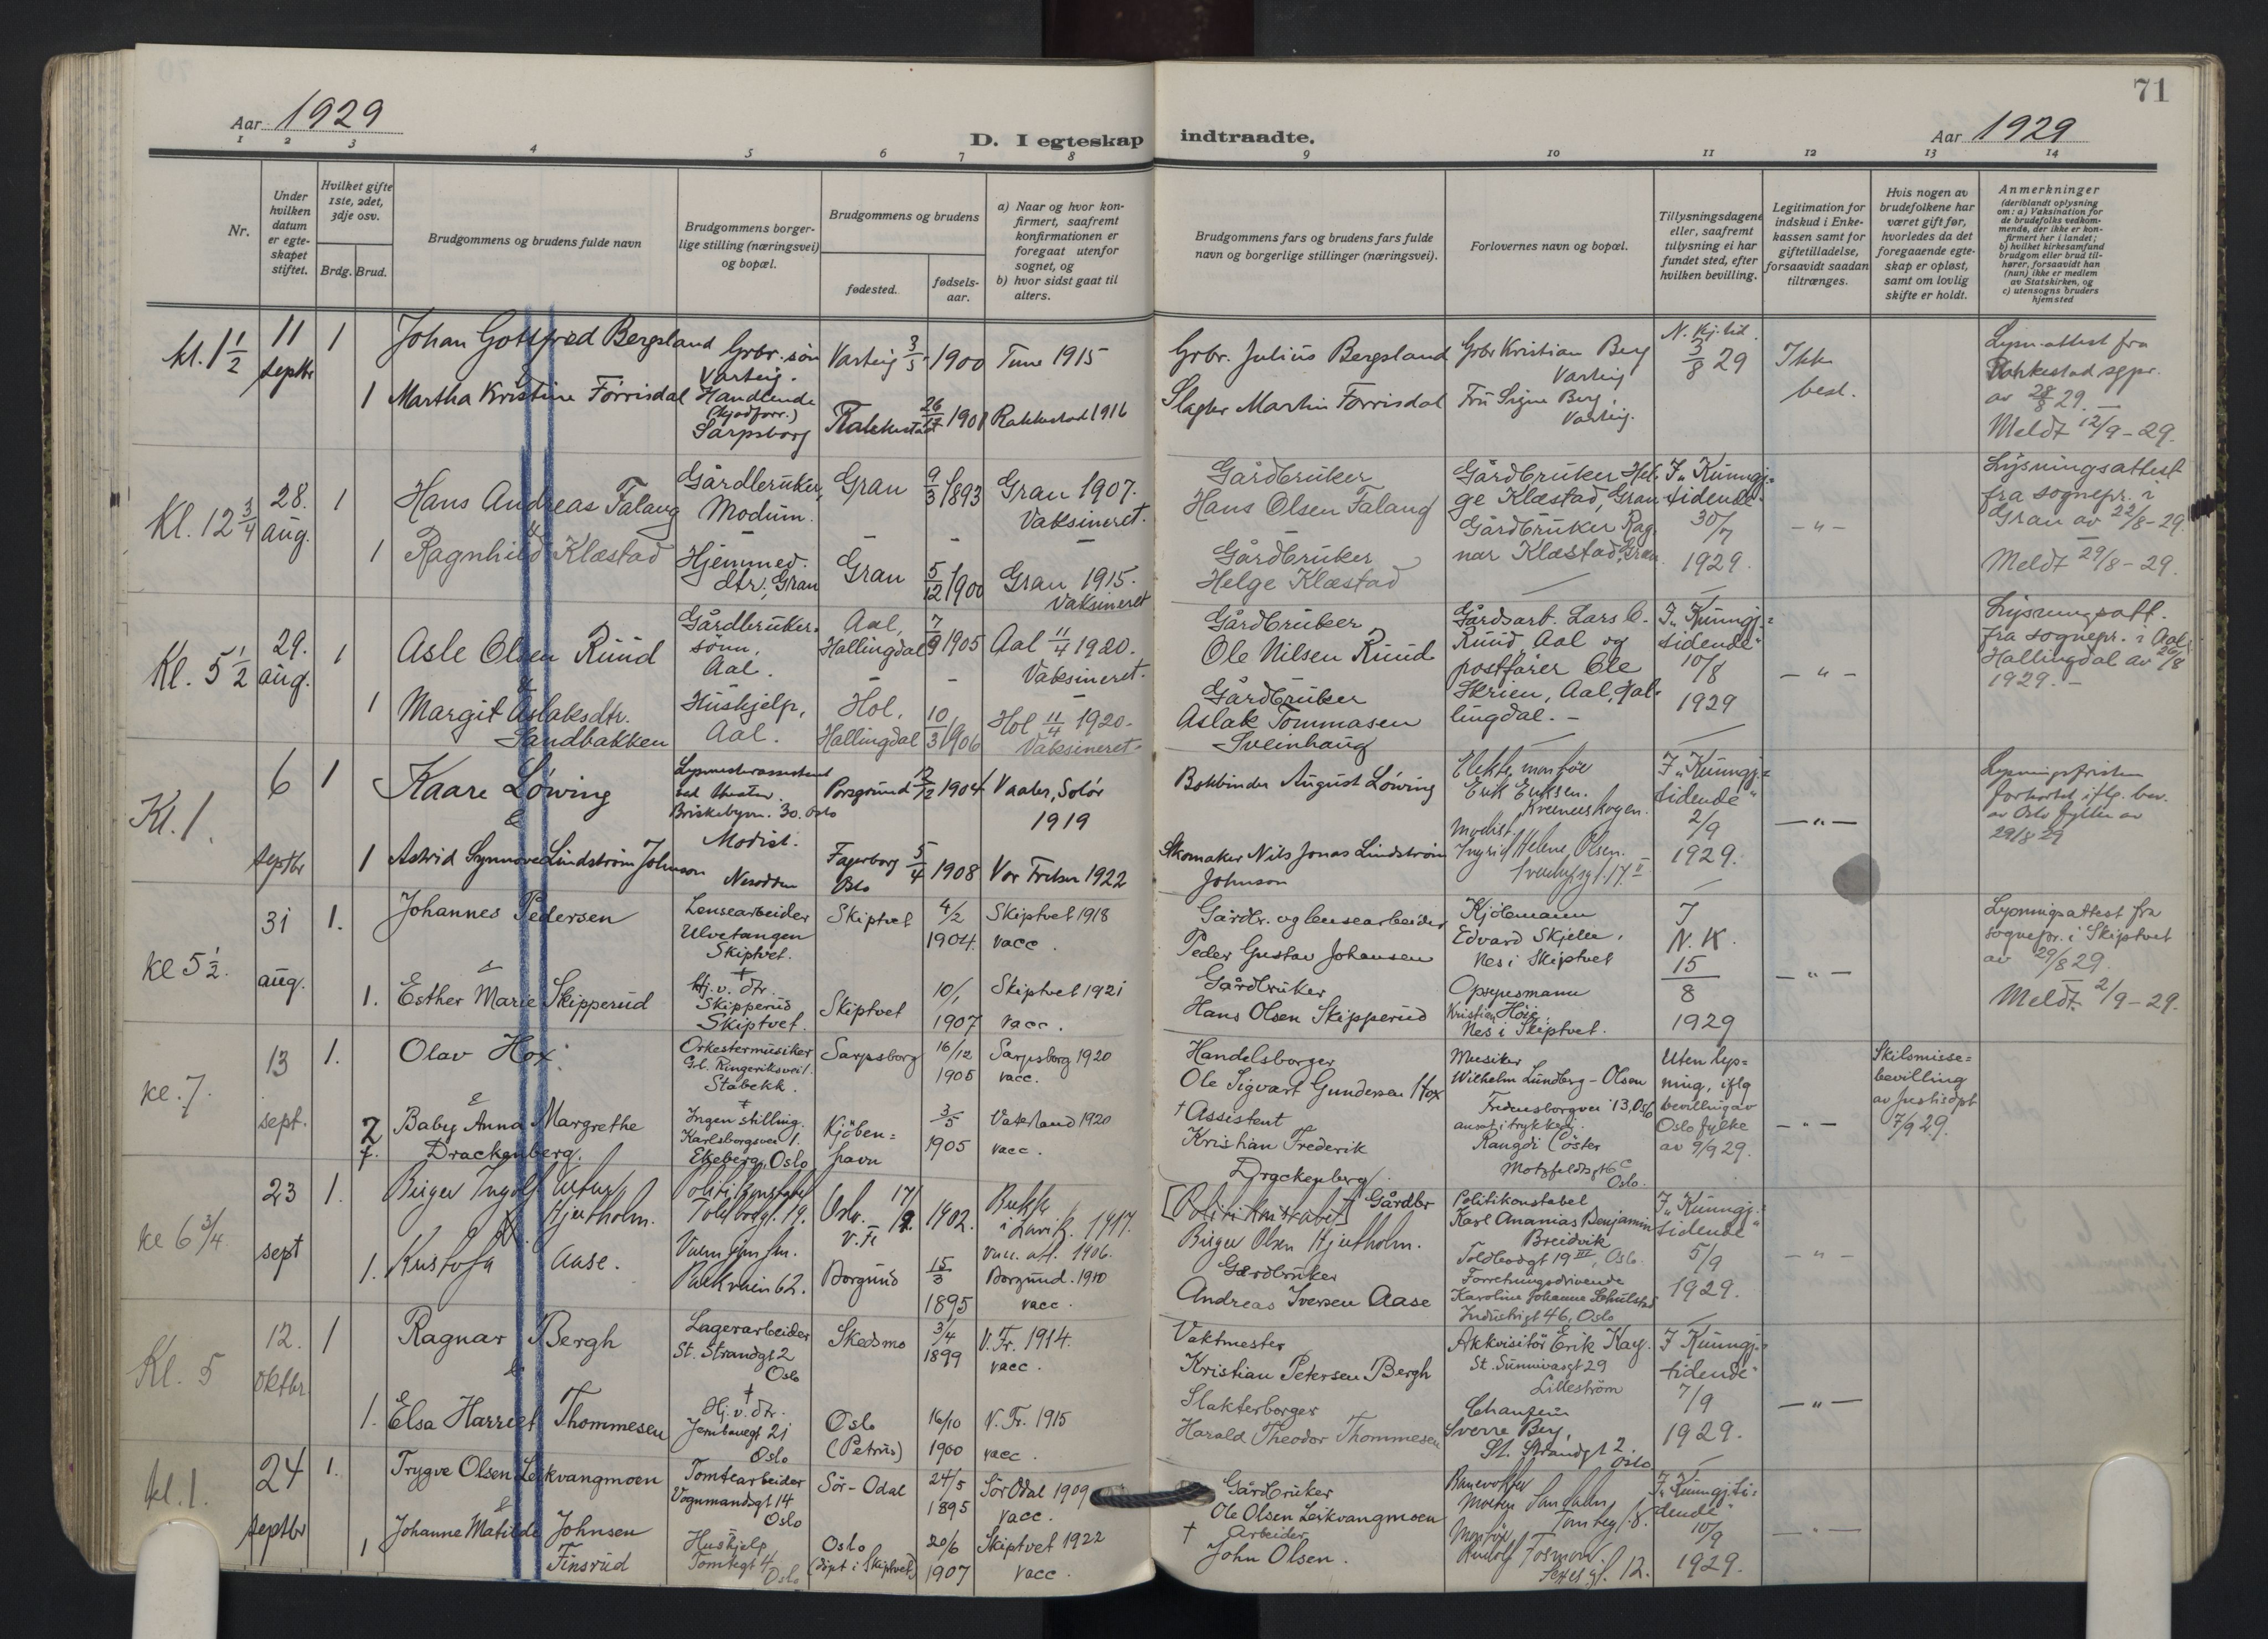 71
Aar 1929
D. I egteskap indtraadte.
Aar 1929
1 2 3 4 5 6 7 8 9 10 11 12 13 14
Nr.
Under hvilken datum er egteskapet stiftet.
Hvilket gifte 1ste, 2det, 3dje osv.
Brdg. Brud.
Brudgommens og brudens fulde navn
Brudgommens borgerlige stilling (næringsvei) og bopæl.
Brudgommens og brudens
fødested.
fødselsaar.
a) Naar og hvor konfirmert, saafremt konfirmationen er foregaat utenfor sognet, og
b) hvor sidst gaat til alters.
Brudgommens fars og brudens fars fulde navn og borgerlige stillinger (næringsvei).
Forlovernes navn og bopæl.
Tillysningsdagene eller, saafremt tillysning ei har fundet sted, efter hvilken bevilling.
Legitimation for indskud i Enkekassen samt for giftetilladelse, forsaavidt saadan tiltrænges.
Hvis nogen av brudefolkene har været gift før, hvorledes da det foregaaende egteskap er opløst, samt om lovlig skifte er holdt.
Anmerkninger
(deriblandt oplysning om: a) Vaksination for de brudefolks vedkommende, der ikke er konfirmert her i landet;
b) hvilket kirkesamfund brudgom eller brud tilhører, forsaavidt han (hun) ikke er medlem av Statskirken, og
c) utensogns bruders hjemsted
Kl. 1 1/2
11 septbr
1
Johan Gottfred Bergsland
&
1 Martha Kristine Førrisdal
Grbr. søn
Varteig.
Handlende
Sarpsborg
Varteig 3/5 1900
Tune 1915
Rakkestad 1901
Rakkestad 1916
Grbr. Julius Bergsland
Slagter Martin Førrisdal
Grbr Kristian Berg
Varteig
Frü Signe Berg,
Varteig.
N. Kj. tid.
3/8 29
Ikke
best.
Lysn.attest fra
Rakkestad sgpr.
av 28/8 29. —
Meldt 12/9 - 29.
Kl. 12 3/4
28. aug.
1
Hans Andreas Falang
&
1 Ragnhild Klæstad
Gårdbrüker,
Modum.
Hjemmed.
dtr., Gran
Gran 9/3 1893
Gran 1907.
Vaksineret.
Gran 5/12 1900
Gran 1915.
Vaksineret
Gårdbrüker
Hans Olsen Falang
Gårdbrüker
Helge Klæstad
Gårdbrüker Hel-
ge Klæstad, Gran
Gårdbrüker Rag-
nar Klæstad, Gran.
I „Künngj.-
tidende"
30/7
1929.
— " —
Lysningsattest
fra sognepr. i
Gran av 22/8 - 29.
Meldt 29/8 - 29.
Kl. 5 1/2
29. aug.
1
Asle Olsen Rüüd
&
1 Margit Aslaksdtr.
Sandbakken
Gårdbrüker-
sönn,
Aal.
Hüshjelp,
Aal.
Aal,
Hallingdal 7/9 1905
Aal 11/4 1920.
Vaksineret.
Hol,
Hallingdal 10/3 1906
Hol 11/4 1920.
Vaksineret.
Gårdbrüker
Ole Nilsen Rüüd
Gårdbrüker
Aslak Tommasen
Sveinhaug
Gårdsarb. Lars O.
Rüüd, Aal og
postfører Ole
Skrien, Aal, Hal-
lingdal. —
I „Künngj.-
tidende"
10/8
1929
— " —
Lysningsatt.
fra sognepr. i Aal,
Hallingdal av 26/8
1929. —
Kl. 1.
6 septbr
1
Kaare Løwing
&
1 Astrid Synnøve Lindstrøm Johnson
Lysmesterassistent
ved theater.
Briskebyvn. 30. Oslo
Modist.
Nesodden
Porsgrund 1904
Vaaler, Solør
1919
Fagerborg
Oslo 5/4 1908
Vor Frelser 1922
Bokbinder August Løwing
Skomaker Nils Jonas Lindstrøm
Johnson
Elektr. montør
Erik Eriksen.
Modist.
Ingrid Helene Olsen.
I „Künngj.-
tidende"
2/9
1929.
— " —
Lysningsfristen
forkortet iflg. bev.
av Oslo fylke av
29/8 29
kl 5 1/2.
31 aug.
1.
Johannes Pedersen
&
1. Esther Marie Skipperud
Lensearbeider
Ulvetangen
Skiptvet.
Hj. v. dtr.
Skipperud
Skiptvet.
Skiptvet 4/2 1904.
Skiptvet 1918
vacc.
Skiptvet 10/1 1907
Skiptvet 1921
vacc.
Gårdbr. og lensearbeider
Peder Gustav Johansen
Gårdbrüker
Hans Olsen Skipperud
Kjöbmann
Edvard Skjelle,
Nes i Skiptvet
Kristian Høie.
Nes i Skiptvet.
I
N. K.
15/8
1929
— " —
Lysningsattest fra
sognepr. i Skiptvet
av 29/8 29.
Meldt 2/9 - 29.
kl. 7.
13 sept.
1.
Olav Hox.
&
2 Baby Anna Margrethe
Drackenberg.
Orkestermüsiker
Gl. Ringeriksvei 1.
Stabekk.
Ingen stilling.
Karlsborgveien 1.
Ekeberg, Oslo
Sarpsborg 16/12 1905
Sarpsborg 1920
vacc.
Kjöben=
havn 3/5 1905
Vaterland 1920
vacc.
Handelsborger
Ole Sigvart Gundersen Hox
† Assistent
Kristian Frederik
Drackenberg
Musiker
Wilhelm Lündberg - Olsen
Fredensborgvei 13, Oslo
ansat i trykkeri
Rangdi Cöster
Motzfeldtsgt 6 c
Oslo.
Uten lys=
ning, iflg
bevilling av
Oslo fylke
av 9/9 29.
— " —
Skilsmisse=
bevilling
av Justisdpt
7/9 29.
kl 6 3/4.
23 sept
1.
Birger Ingolf
Hjertholm.
&
1. Kristofa Aase.
Politikonstabel
Toldbodgt. 19.
Parkveien 62.
Oslo. 1902.
V. Fr.
i Lavik. 1917.
vacc. att. 1906.
Borgund 15/3 1895
Borgund. 1910
vacc.
[Politikonstabel] Gårdbr
Birger Olsen Hjertholm.
Gårdbrüker
Andreas Iversen Aase
Politikonstabel
Karl Ananias Benjamin
Breidvik
Toldbodgt 19 III, Oslo.
Forretningsdrivende
Karoline Johanne Schulstad
Industrigt 46, Oslo
I „Künngj.-
tidende"
5/9
1929.
— " —
Kl. 5
12. oktbr
1
Ragnar Bergh
&
1. Elsa Harriet Thommesen
Lagerarbeider
St. Strandgt 2
Oslo
Hj. v. dtr.
Jernbanegt 21
Oslo
Skedsmo 3/4 1899
V. Fr. 1914.
vacc.
Oslo
(Petrus) 16/10 1900
V. Fr. 1915
vacc.
Vaktmester
Kristian Petersen Bergh
Slakterborger
Harald Theodor Thommesen
Akkvisitör Erik Kay.
St. Sunnivasgt 29
Lilleström
Sverre Berg,
St. Strandgt 2.
Oslo
I Künngj.-
tidende"
7/9
1929.
— " —
kl. 1.
24 septbr
1.
Trygve Olsen Leikvangmoen
&
1 Johanne Matilde Johnsen
Finsrud
Tomtearbeider
Vognmandsgt 14
Oslo
Hushjelp
Tomtegt 4
Oslo
Sör-Odal 24/5 1895
Sör Odal 1909
vacc.
Oslo
(döpt i Skiptvet) 20/6 1907
Skiptvet 1922
vacc.
Gårdbrüker
Ole Olsen Leikvangmoen
† Arbeider
John Olsen.
Tomtegt. 8.
Montør
12.
I „Künngj.ti-
dende"
10/9
1929.
— " —